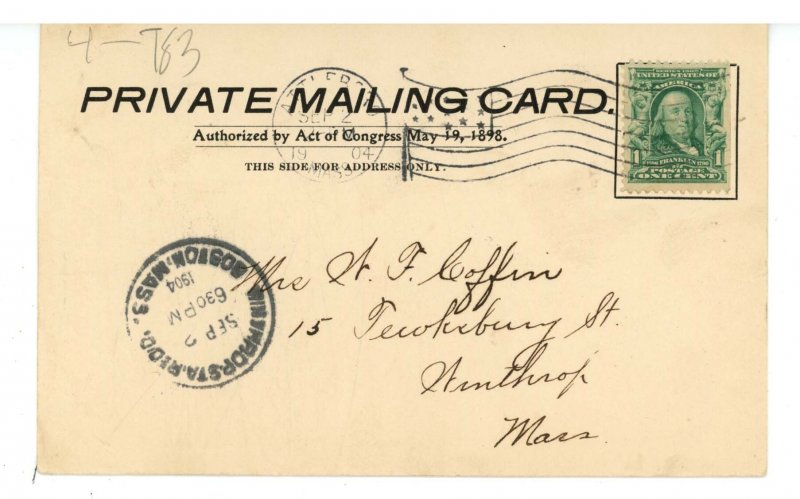 4-T83
PRIVATE MAILING CARD.
Authorized by Act of Congress May 19, 1898.
THIS SIDE FOR ADDRESS ONLY.
SEP 2
19 04
MASS
SERIES 1902
UNITED STATES OF
AMERICA
1 FRANKLIN 1
POSTAGE
ONE CENT
WINTHROP STA. RECD.
BOSTON, MASS.
1904
630 PM
SEP 2
Mrs W. F. Coffin
15 Tewksbury St.
Winthrop
Mass.